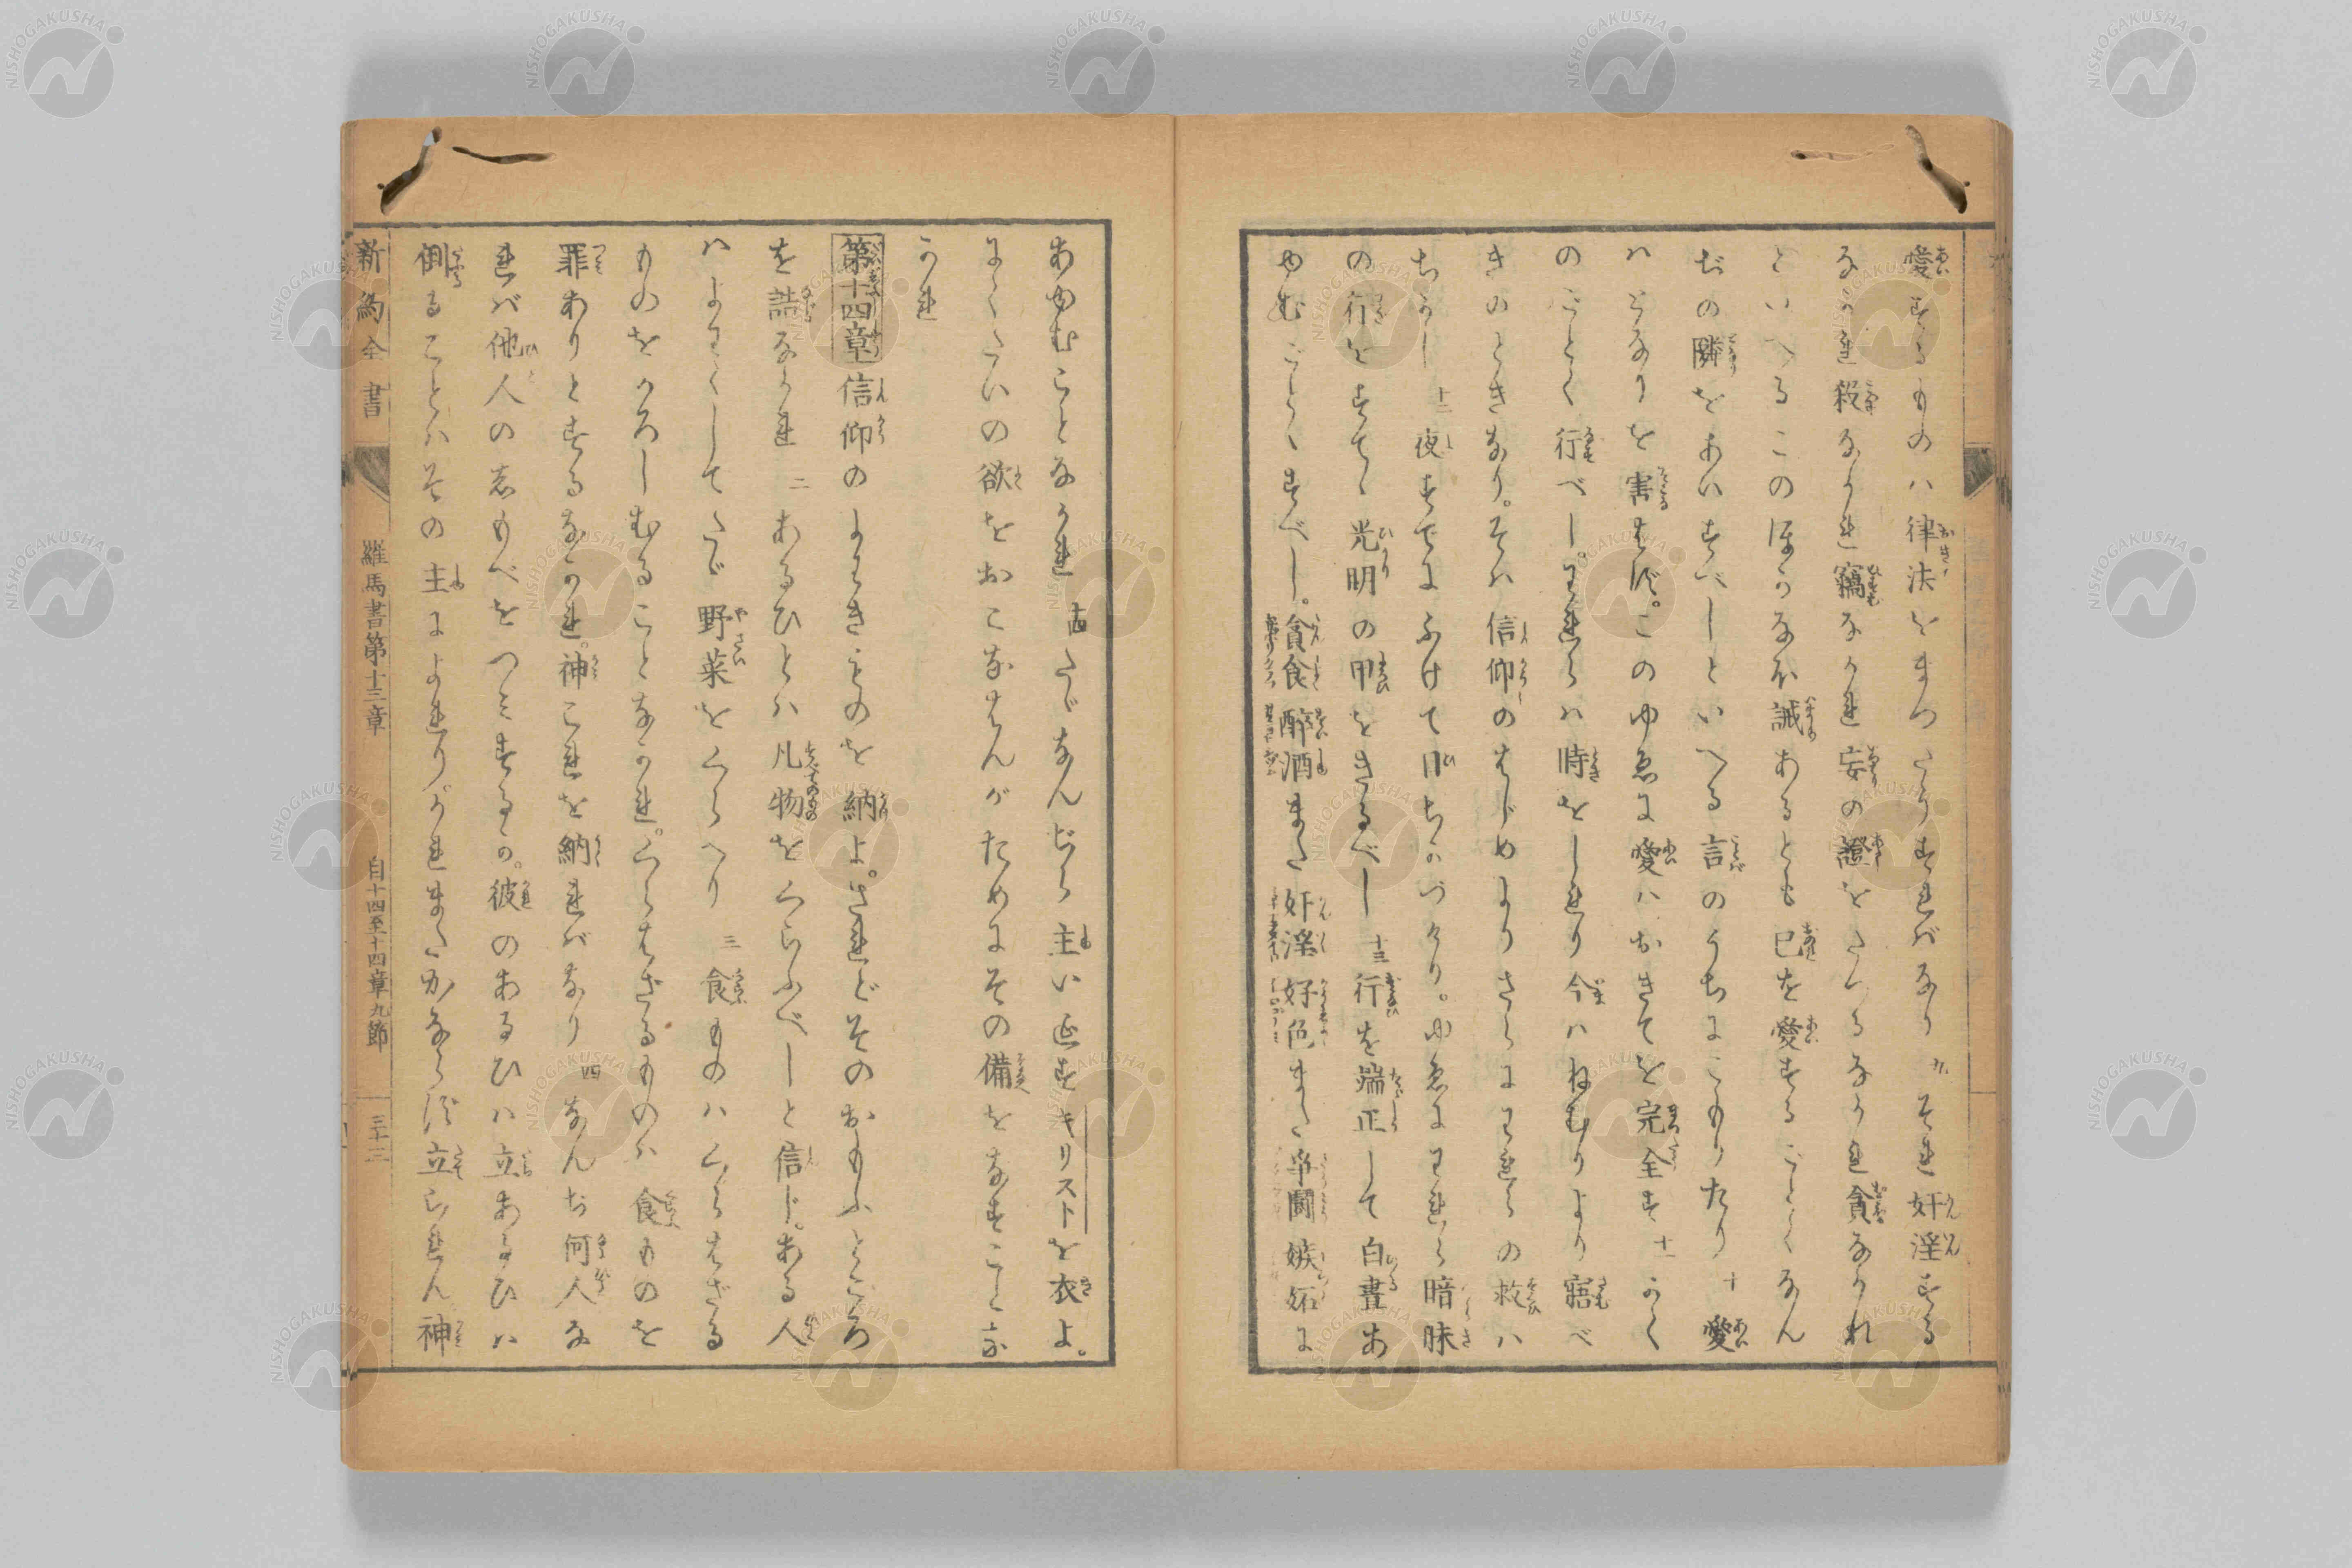 愛するものハ律法をまつたうすればなり 九 それ奸淫する
なかれ殺なかれ竊なかれ妄の證をたつるなかれ貪なかれ
といへるこのほかなほ誡あるとも己を愛するごとくなん
ぢの隣をあいすべしといへる言のうちにこもりたり 十 愛
ハとなりを害はず。このゆゑに愛ハおきてを完全す 十一 かく
のごとく行べし。われらハ時をしれり今ハねむりより寤べ
きのときなり。そハ信仰のはじめよりさらにわれらの救ハ
ちかし 十二 夜すでにふけて日ちかづけり。ゆゑにわれら暗昧
の行をすてゝ光明の甲をきるべし 十三 行を端正して白晝あ
ゆむごとくすべし。貪食醉酒また奸淫好色また爭鬪嫉妬に
あゆむことなかれ 十四 たゞなんぢら主いゑすキリストを衣よ。
にくたいの欲をおこなはんがためにその備をなすことな
かれ
第十四章 信仰のよわきものを納よ。されどそのおもふところ
を詰なかれ 二 あるひとハ凡物をくらふべしと信ず。ある人
ハよわくしてたゞ野菜をくらへり 三 食ものハくらはざる
ものをかろしむることなかれ。くらはざるものハ食ものを
罪ありとするなかれ。神これを納ればなり 四 なんぢ何人な
れバ他人の志もべをつみするか。彼のあるひハ立あるひハ
倒ることハその主によれり。かれまたかならず立られん神
新約全書
羅馬書第十三章
自十四至十四章九節
三十二